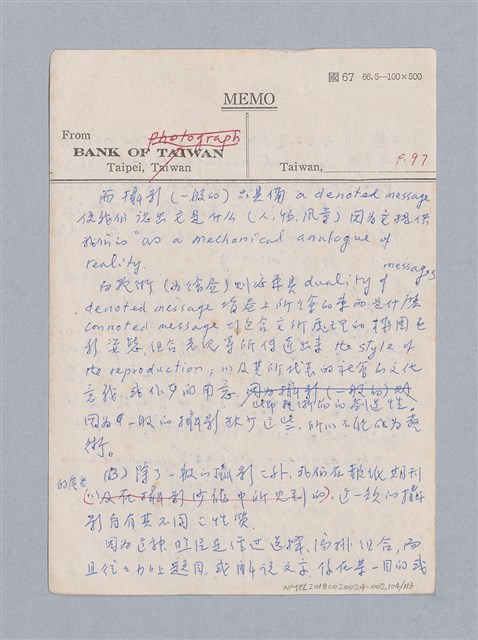 國 67 66.5—100×500
MEMO
From
photograph
BANK OF TAIWAN
Taipei, Taiwan
Taiwan,
P.97
而攝影(一般的)只具備 a denoted message
使我們認出它是什么(人,物,風景)因為它提供
我们的 "as a mechanical analogue of
reality.
而藝術(如繪畫)則
duality of messages
denoted message 指畫上所
的東西是什麽
connoted message 則包含文所處理的構圖色
彩,姿態,組合,
等所傳達出來 the style of
the reproduction,以及其所代表的社會的文化
意義,或作者的用意,因為攝影(一般的)
此即藝術的的創造性。
因為一般的攝影缺少這些,所以不能成為藝
術。
(B) 除了一般的攝影之外,我們在報紙期刊
的廣告
(以及在攝影沙龍中所見到的)這一類的攝
影自有其不同之性質。
因為這种照片是經過選擇,編排組合,而
且往往加上題目,或解說文字 係在某一目的或
NMTL20180020024-002,104/113